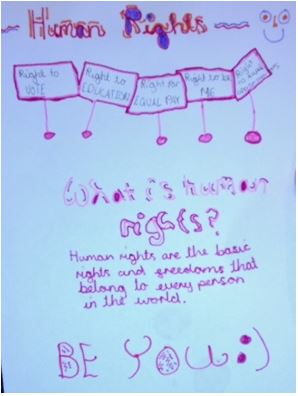 Human Rights
Right to
VOTE
Right to
EDUCATION
Right for
EQUAL PAY
Right to be
ME
Right to
What is human
rights?
Human rights are the basic
rights and freedoms that
belong to every person
in the world.
BE YOU :)